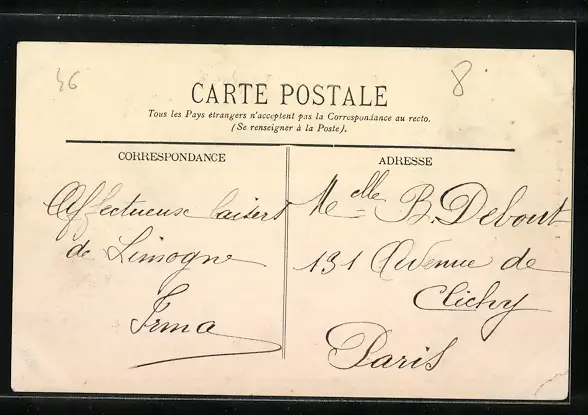 46
8
CARTE POSTALE
Tous les Pays étrangers n'acceptent pas la Correspondance au recto.
(Se renseigner à la Poste).
CORRESPONDANCE
Affectueux baisers
de Limogne
Irma
ADRESSE
Melle B. Debout
131 Avenue de
Clichy
Paris